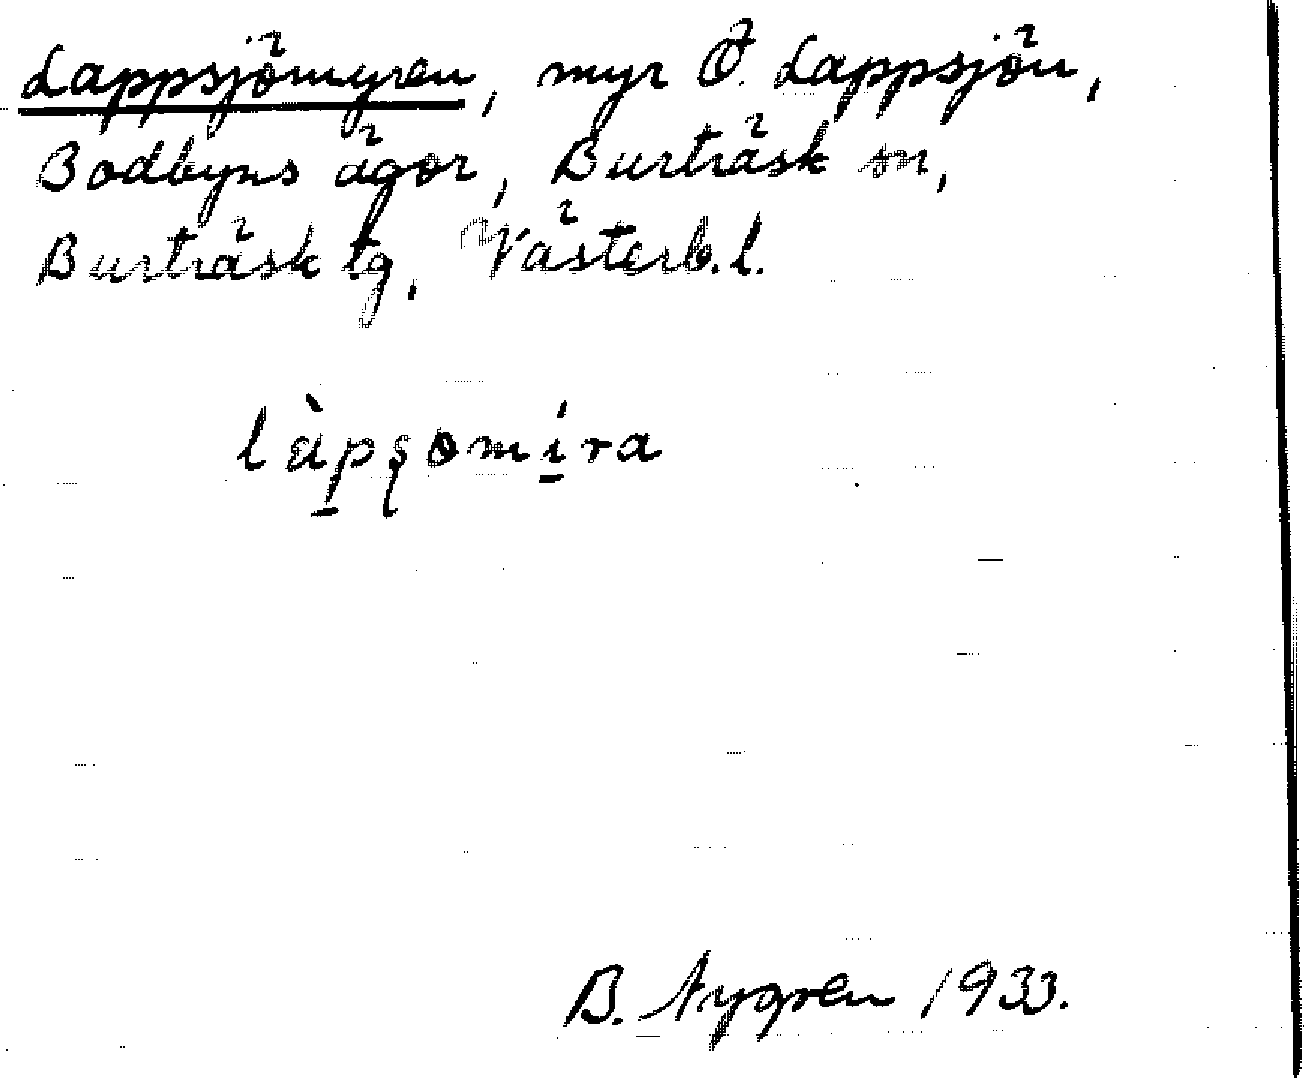 Lappsjömyren, myr Ö. Lappsjön,
Bodbyns ägor, Burträsk sn,
Burträsk tg, Västerb. l.
làpşomíra
B. Nygren 1933.